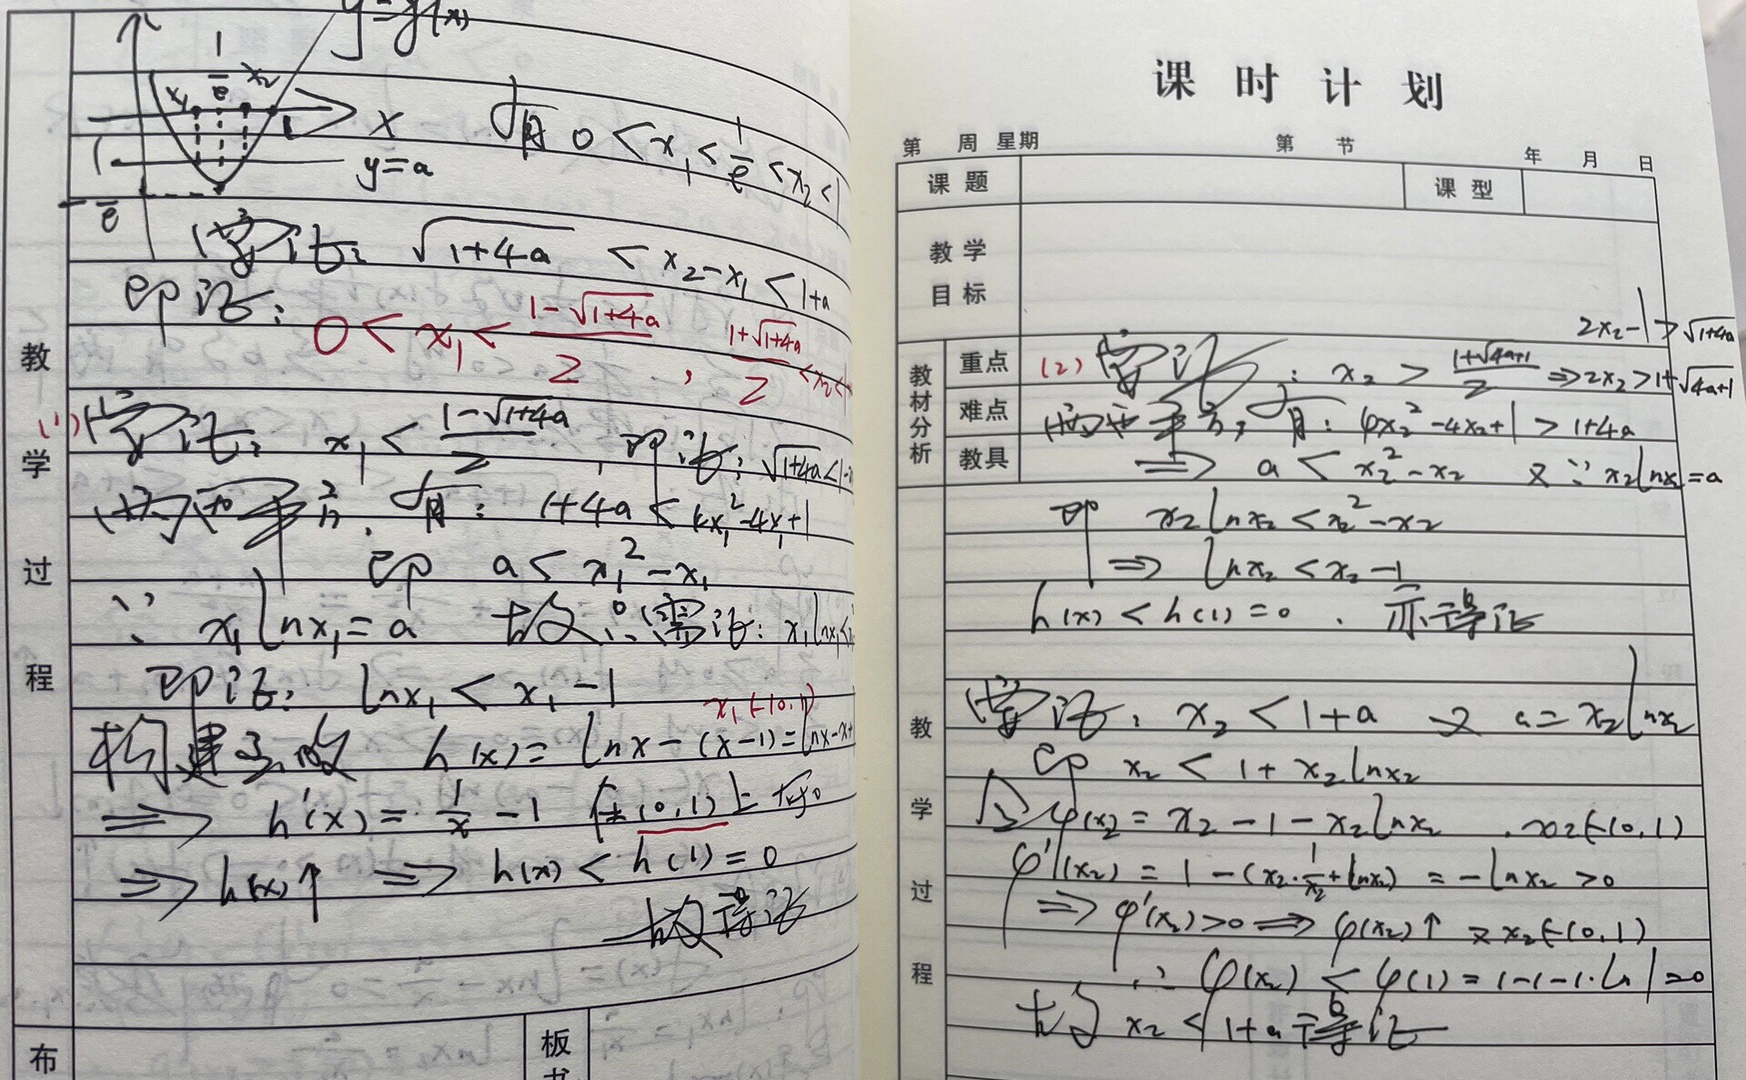 y=f(x)
1/e
x₁ x₂
1 x
y=a
-1/e
有 0<x₁<1/e<x₂<1
需证: √(1+4a) < x₂-x₁ < 1+a
即证: 0 < x₁ < (1-√(1+4a))/2 , (1+√(1+4a))/2 < x₂ <
(1) 需证: x₁ < (1-√(1+4a))/2 , 即证: √(1+4a) < 1-
两边平方, 有: 1+4a < 4x₁²-4x₁+1
即 a < x₁²-x₁
∵ x₁lnx₁=a 故只需证: x₁lnx₁<
即证: lnx₁ < x₁-1
x₁∈(0,1)
构建函数 h(x)= lnx-(x-1)=lnx-x+
⇒ h'(x)= 1/x -1 在(0,1)上 恒>0
⇒ h(x)↑ ⇒ h(x) < h(1)=0
故得证
教
学
过
程
布
板
书
课时计划
第 周 星期 第 节 年 月 日
课题 课型
教学
目标
2x₂-1>√(1+4a)
教材分析
重点
难点
教具
(2) 需证: x₂ > (1+√(4a+1))/2 ⇒2x₂>1+√(4a+1)
两边平方, 有: 4x₂²-4x₂+1 > 1+4a
⇒ a < x₂²-x₂ 又∵ x₂lnx₂=a
即 x₂lnx₂<x₂²-x₂
⇒ lnx₂<x₂-1
h(x)<h(1)=0 . 亦得证
需证: x₂<1+a 又 a=x₂lnx₂
即 x₂ < 1+x₂lnx₂
令 φ(x₂)=x₂-1-x₂lnx₂ , x₂∈(0,1)
φ'(x₂)=1-(x₂·1/x₂+lnx₂)=-lnx₂>0
⇒ φ'(x₂)>0 ⇒ φ(x₂)↑ 又x₂∈(0,1)
∴ φ(x₂) < φ(1)=1-1-1·ln1=0
故 x₂<1+a 得证
教
学
过
程